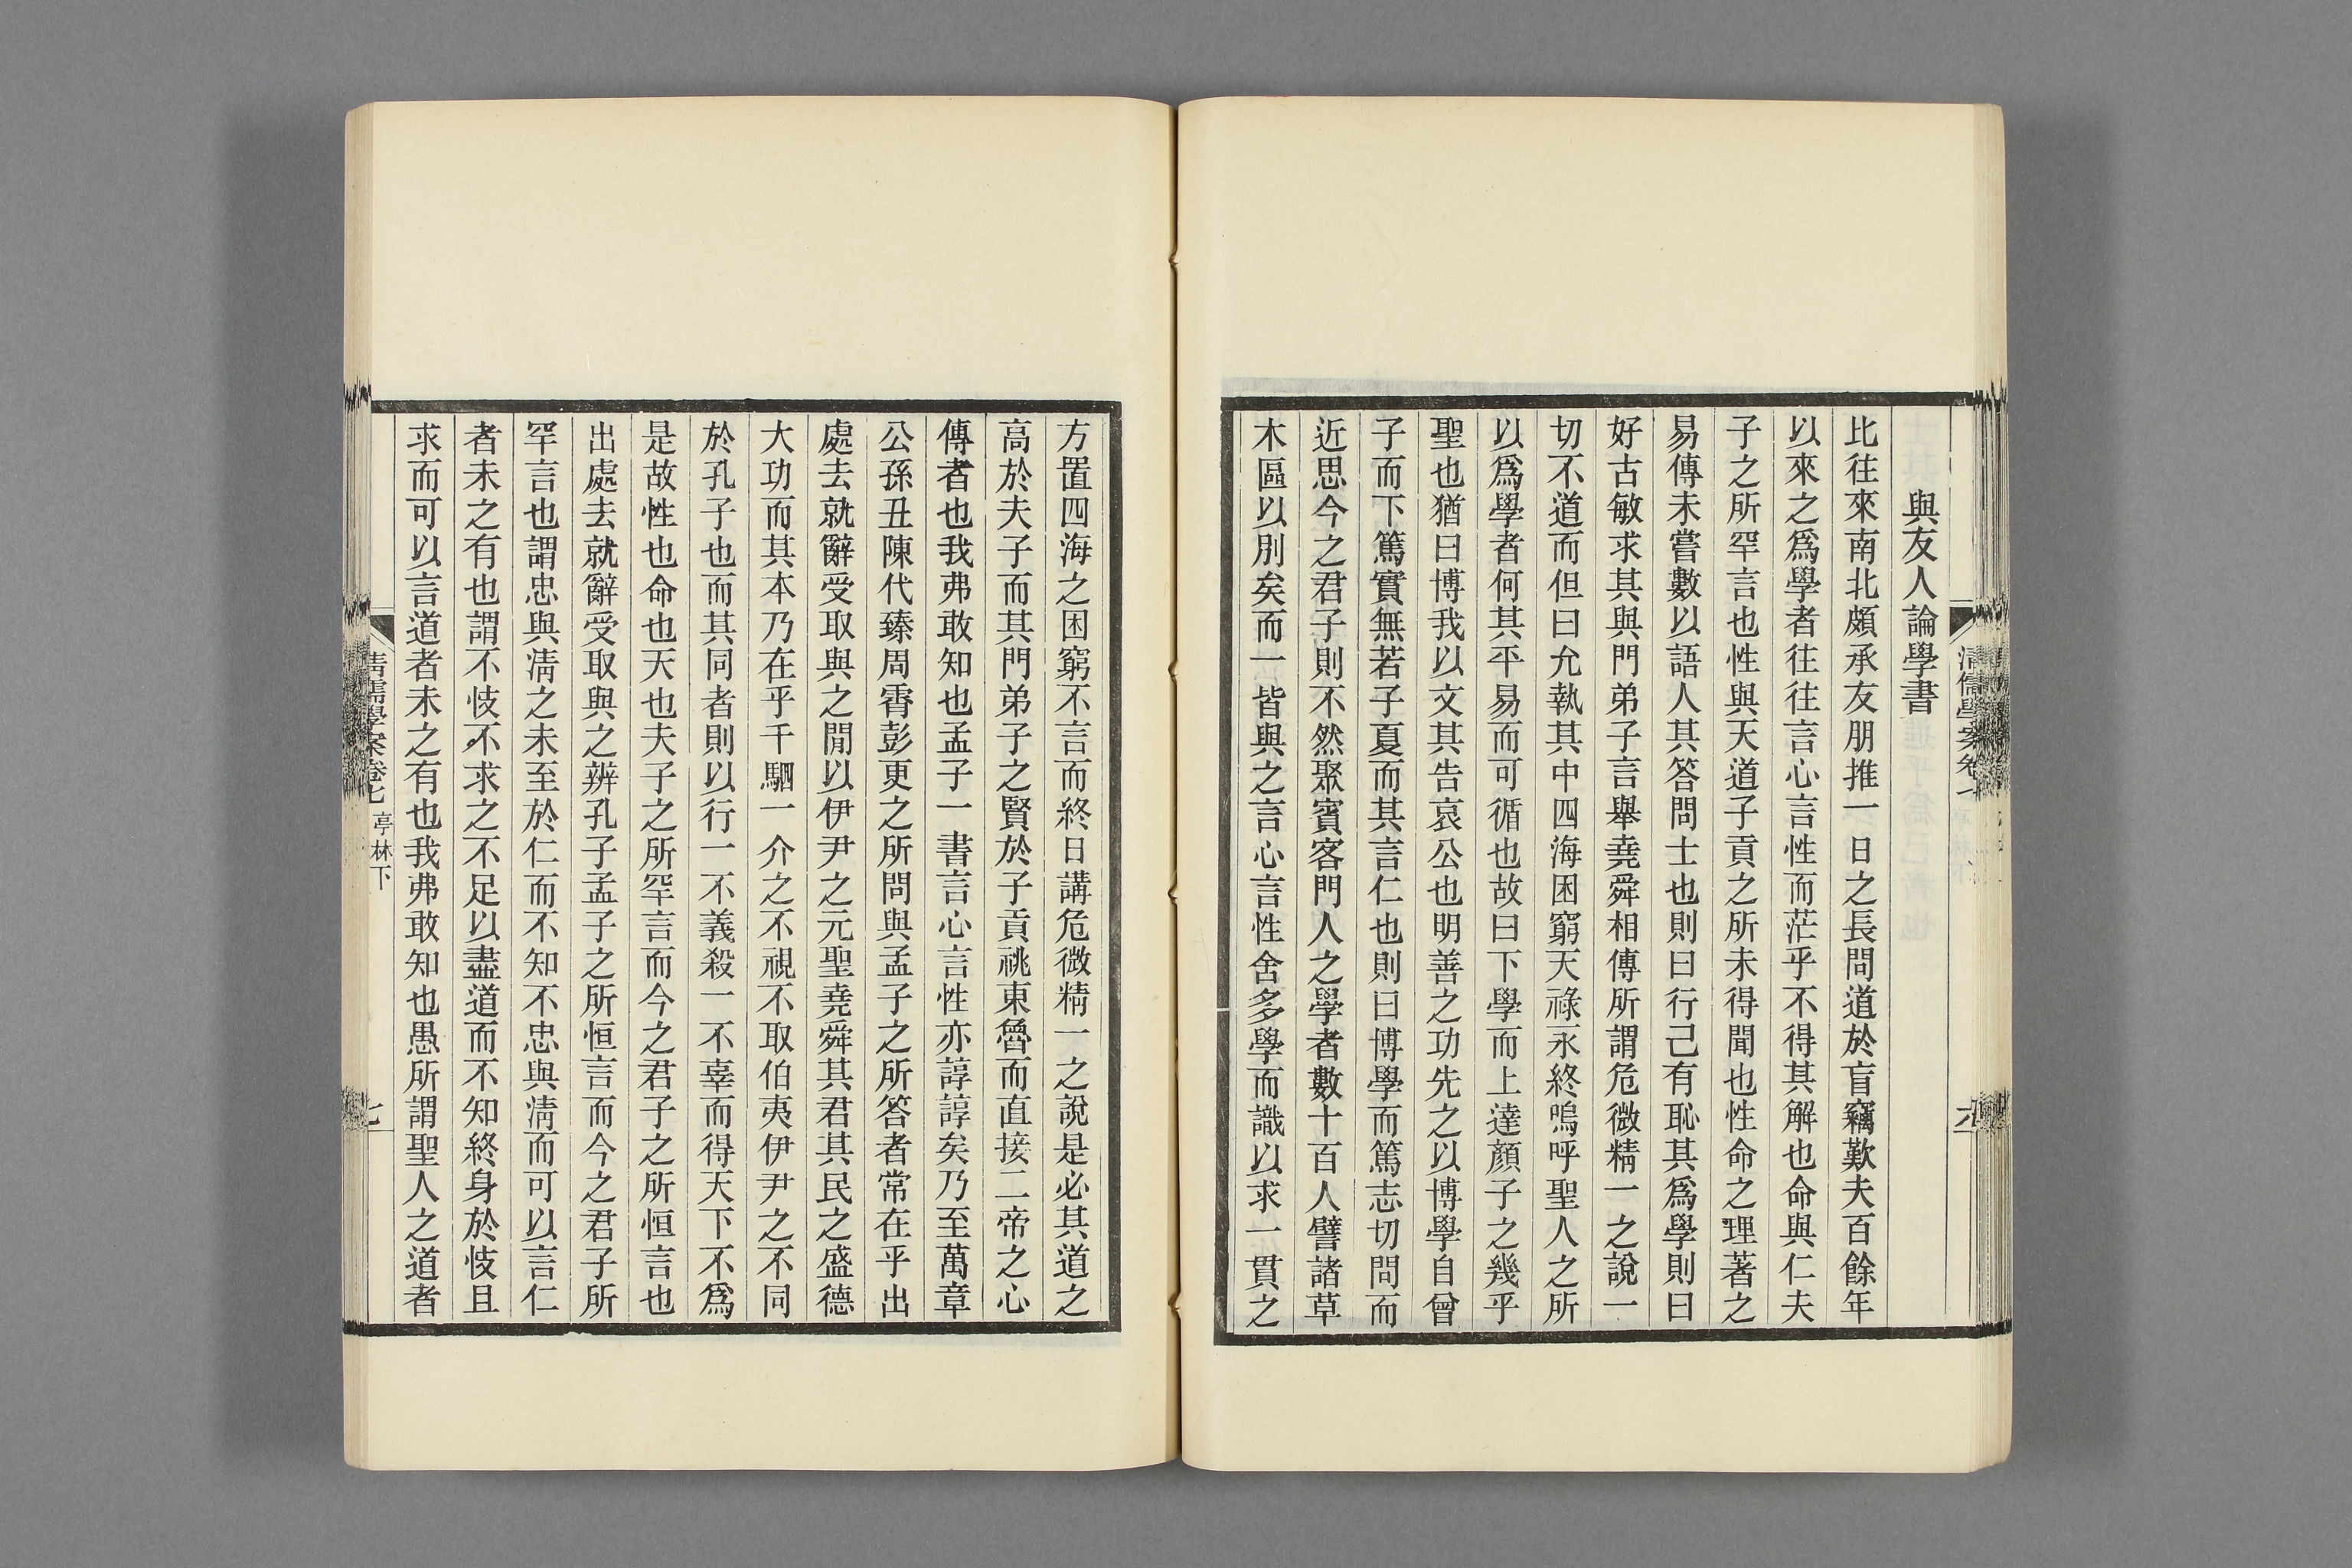 與友人論學書
比往來南北頗承友朋推一日之長問道於盲竊歎夫百餘年
以來之爲學者往往言心言性而茫乎不得其解也命與仁夫
子之所罕言也性與天道子貢之所未得聞也性命之理著之
易傳未嘗數以語人其答問士也則曰行己有恥其爲學則曰
好古敏求其與門弟子言舉堯舜相傳所謂危微精一之說一
切不道而但曰允執其中四海困窮天祿永終嗚呼聖人之所
以爲學者何其平易而可循也故曰下學而上達顏子之幾乎
聖也猶曰博我以文其告哀公也明善之功先之以博學自曾
子而下篤實無若子夏而其言仁也則曰博學而篤志切問而
近思今之君子則不然聚賓客門人之學者數十百人譬諸草
木區以別矣而一皆與之言心言性舍多學而識以求一貫之
方置四海之困窮不言而終日講危微精一之說是必其道之
高於夫子而其門弟子之賢於子貢祧東魯而直接二帝之心
傳者也我弗敢知也孟子一書言心言性亦諄諄矣乃至萬章
公孫丑陳代臻周霄彭更之所問與孟子之所答者常在乎出
處去就辭受取與之閒以伊尹之元聖堯舜其君其民之盛德
大功而其本乃在乎千駟一介之不視不取伯夷伊尹之不同
於孔子也而其同者則以行一不義殺一不辜而得天下不爲
是故性也命也天也夫子之所罕言而今之君子之所恒言也
出處去就辭受取與之辨孔子孟子之所恒言而今之君子所
罕言也謂忠與清之未至於仁而不知不忠與清而可以言仁
者未之有也謂不忮不求之不足以盡道而不知終身於忮且
求而可以言道者未之有也我弗敢知也愚所謂聖人之道者
清儒學案卷七 亭林下
七